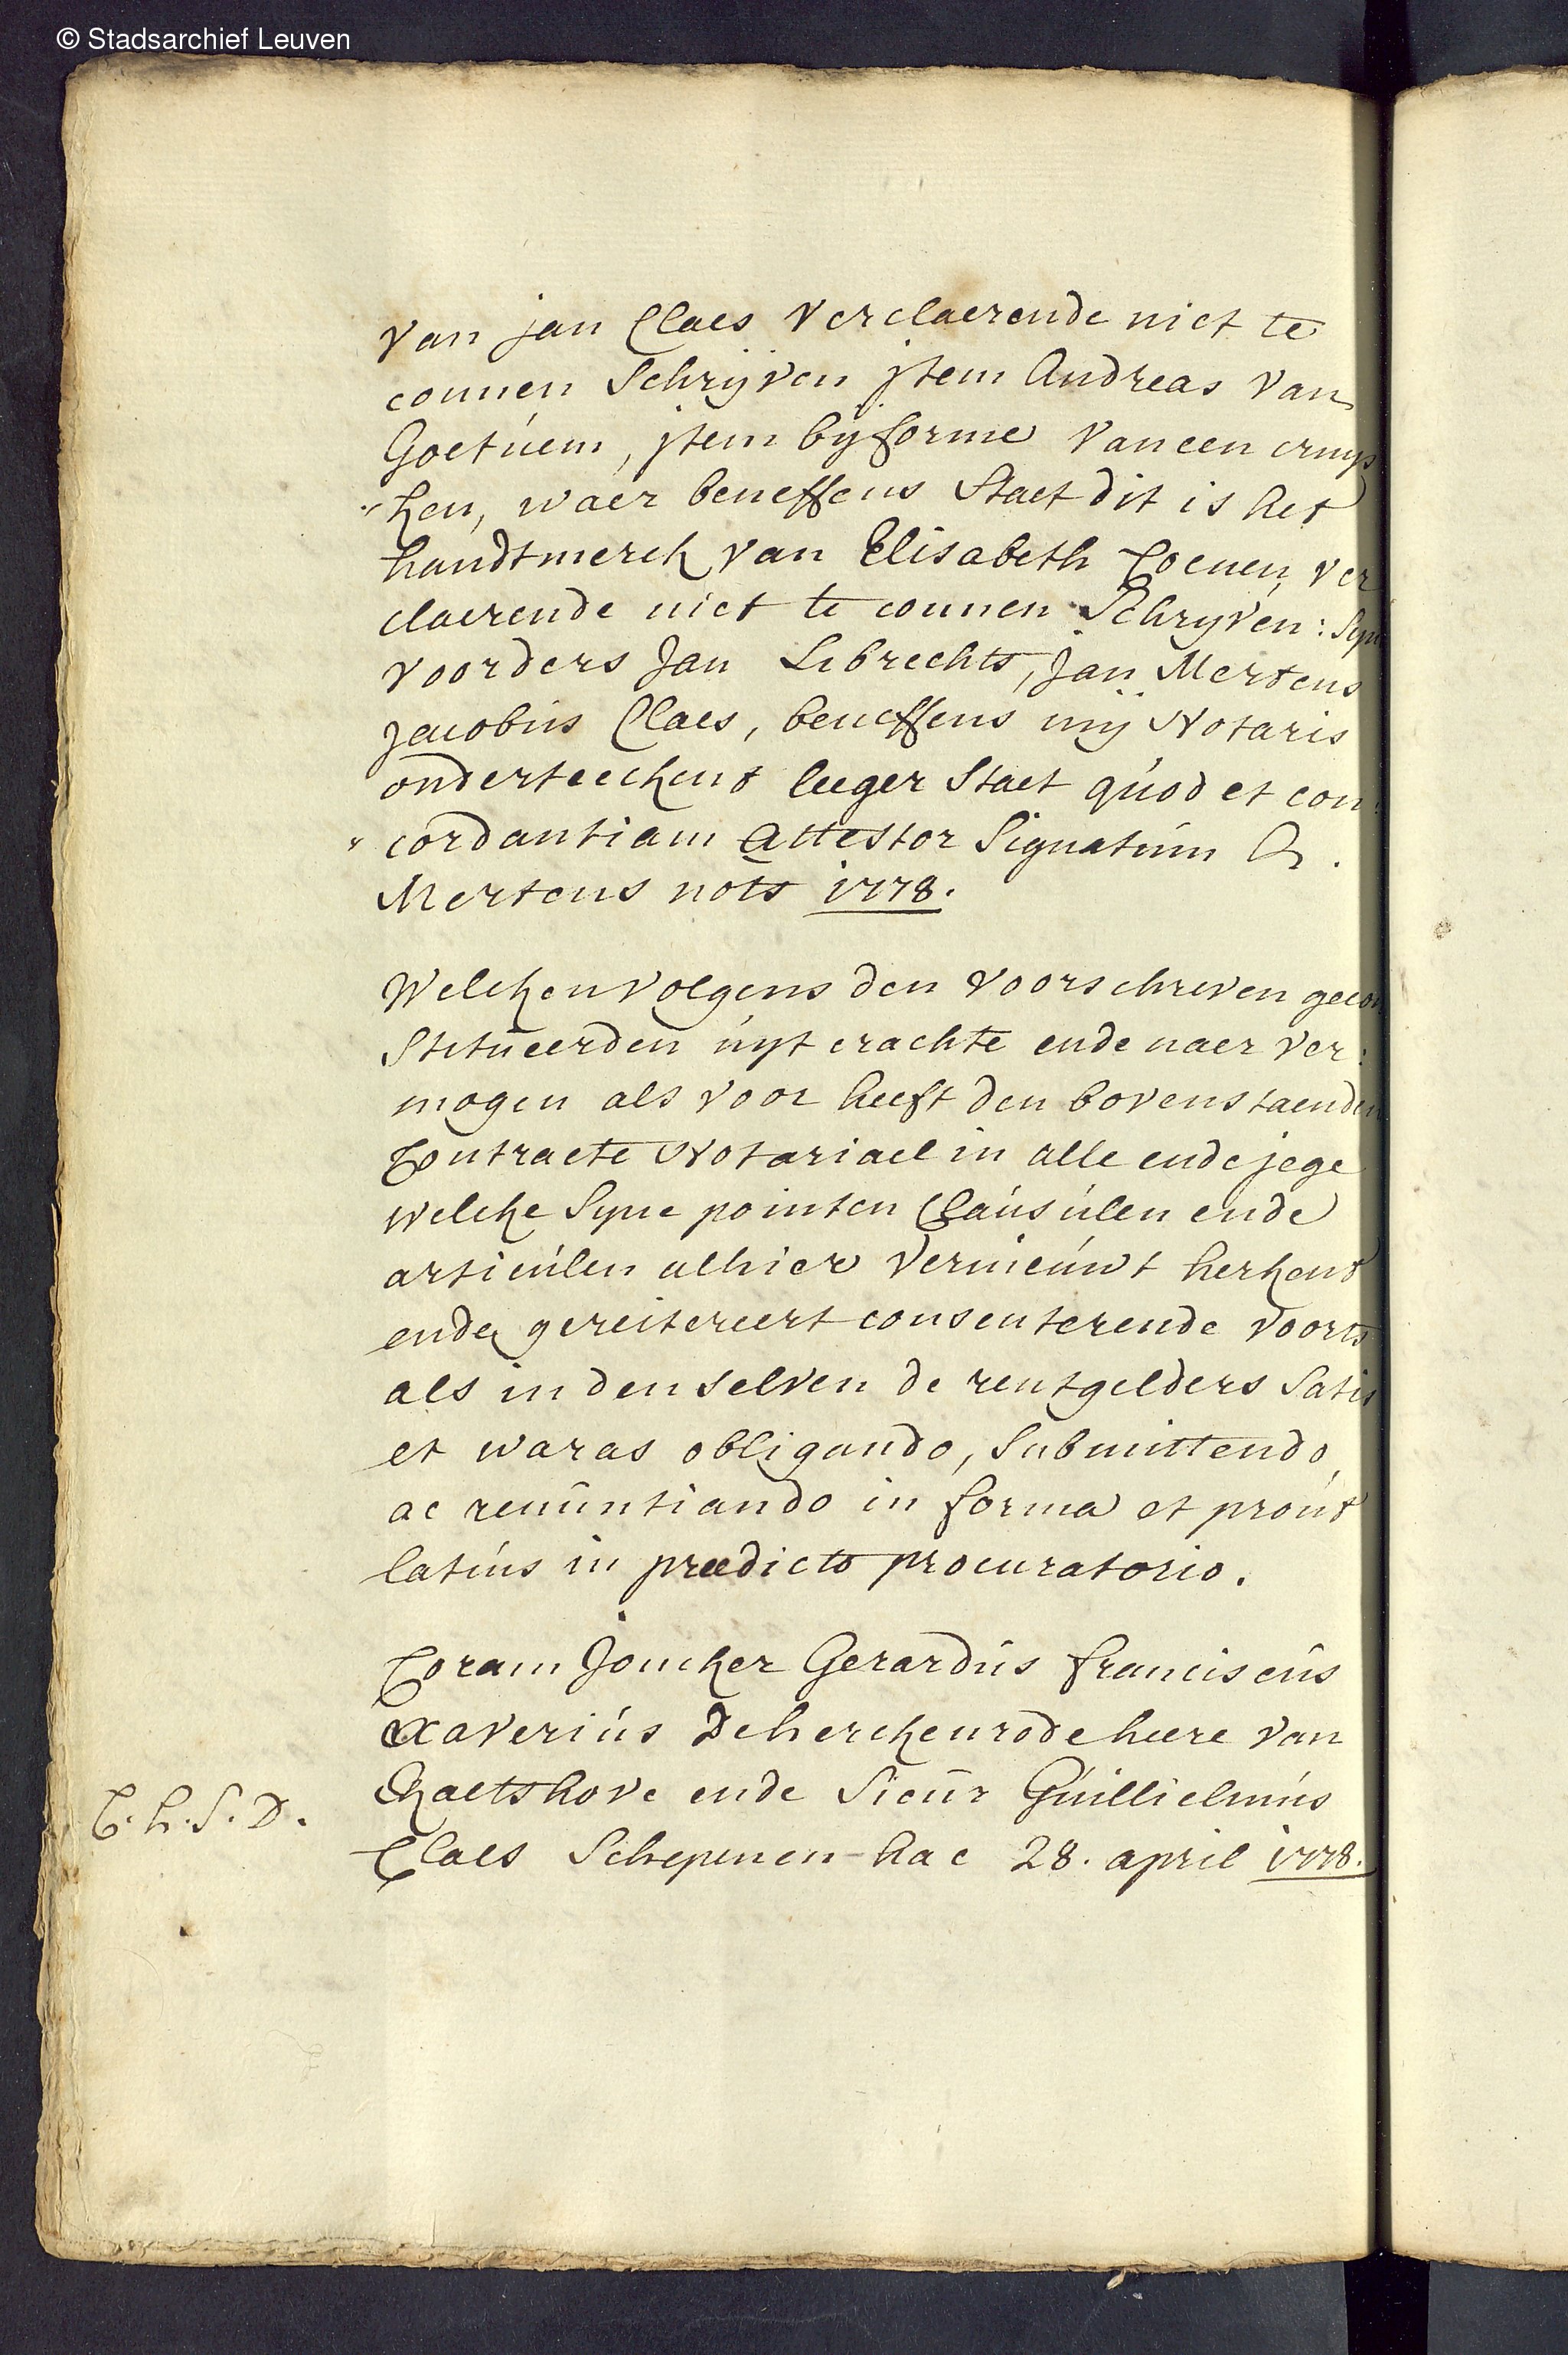 © Stadsarchief Leuven
van jan Claes verclaerende niet te
connen schrijven jtem Andreas van
Goetuem, jtem bij forme van een cruys
"ken, waer beneffens staet dit is het
handtmerck van Elisabeth Coenen, ver
claerende niet te connen schryven: syn
voorders Jan Librechts, Jan Mertens
jacobus Claes, beneffens mij Notaris
onderteeckent leeger staet quod et con:
"cordantiam attestor signatum A.
Mertens nots 1778.
Welcken volgens den voorschreven gecon
stitueerden uyt crachte ende naer ver:
mogen als voor heeft den bovenstaenden
Contracte Notariael in alle ende jege
welcke syne pointen Clausulen ende
articulen alhier vernieuwt herkent
ende gereitereert consenterende voorts
als in den selven de rentgelders satis
et waras obligando, submittendo,
ac renuntiando in forma et prout
latius in praedicto procuratorio.
Coram Joncker Gerardus franciscus
Xaverius De herckenrode heere van
C.h.S.D.
Raetshove ende Sieur Guillielmus
Claes Schepenen hac 28. april 1778.